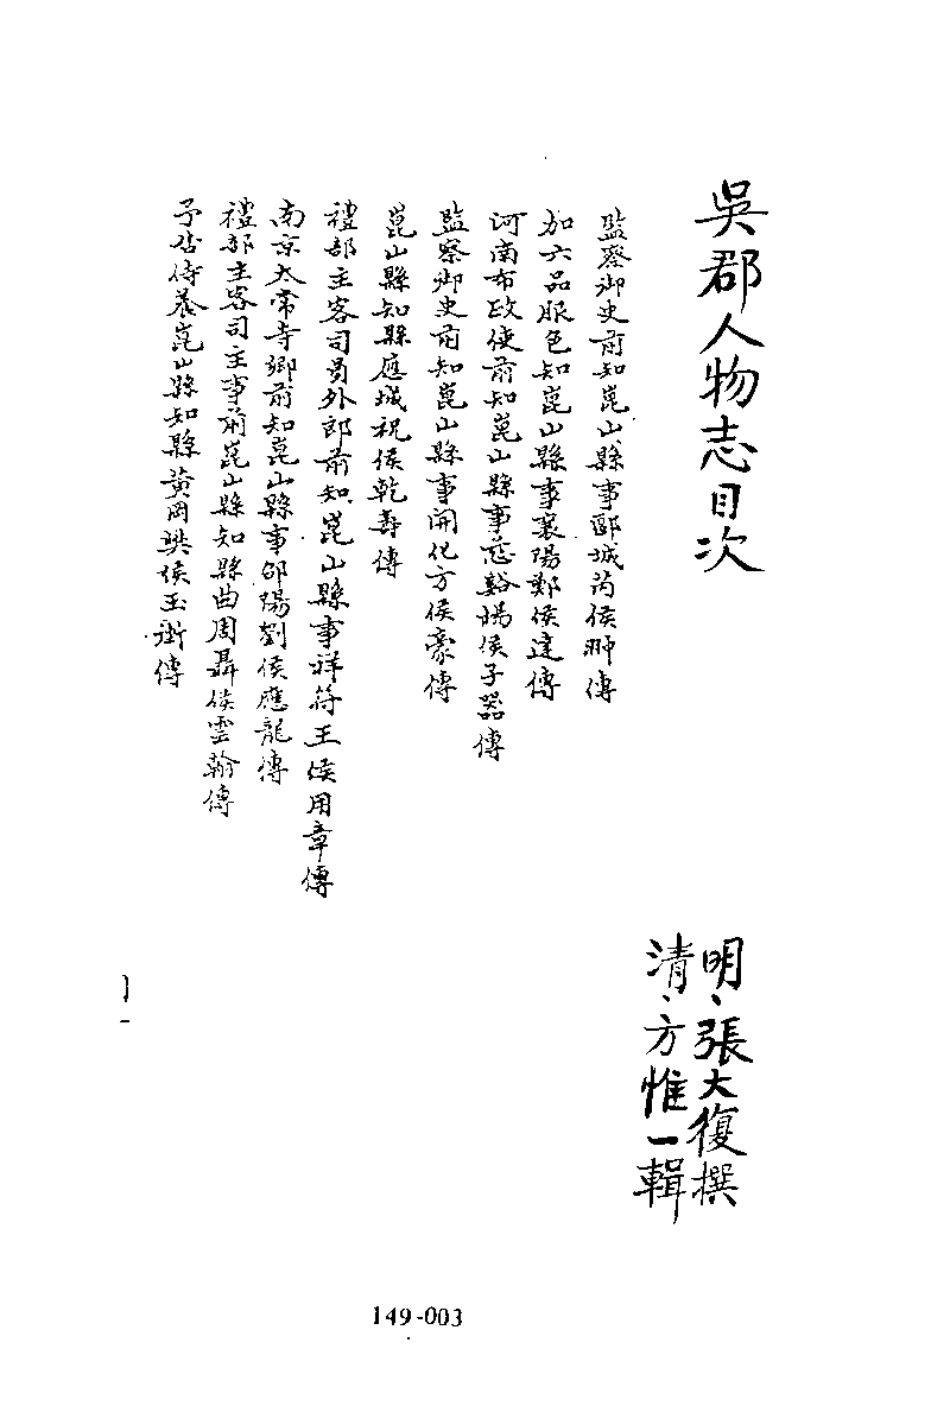 吳郡人物志目次
明、張大復撰
清、方惟一輯
監察御史前知崑山縣事郾城芮侯翀傳
加六品服色知崑山縣事襄陽鄭侯達傳
河南布政使前知崑山縣事慈谿楊侯子器傳
監察御史前知崑山縣事開化方侯豪傳
崑山縣知縣應城祝侯乾壽傳
禮部主客司員外郎前知崑山縣事祥符王侯用章傳
南京太常寺卿前知崑山縣事邵陽劉侯應龍傳
禮部主客司主事前崑山縣知縣曲周聶侯雲翰傳
予告侍養崑山縣知縣黃岡樊侯玉衡傳
149-003